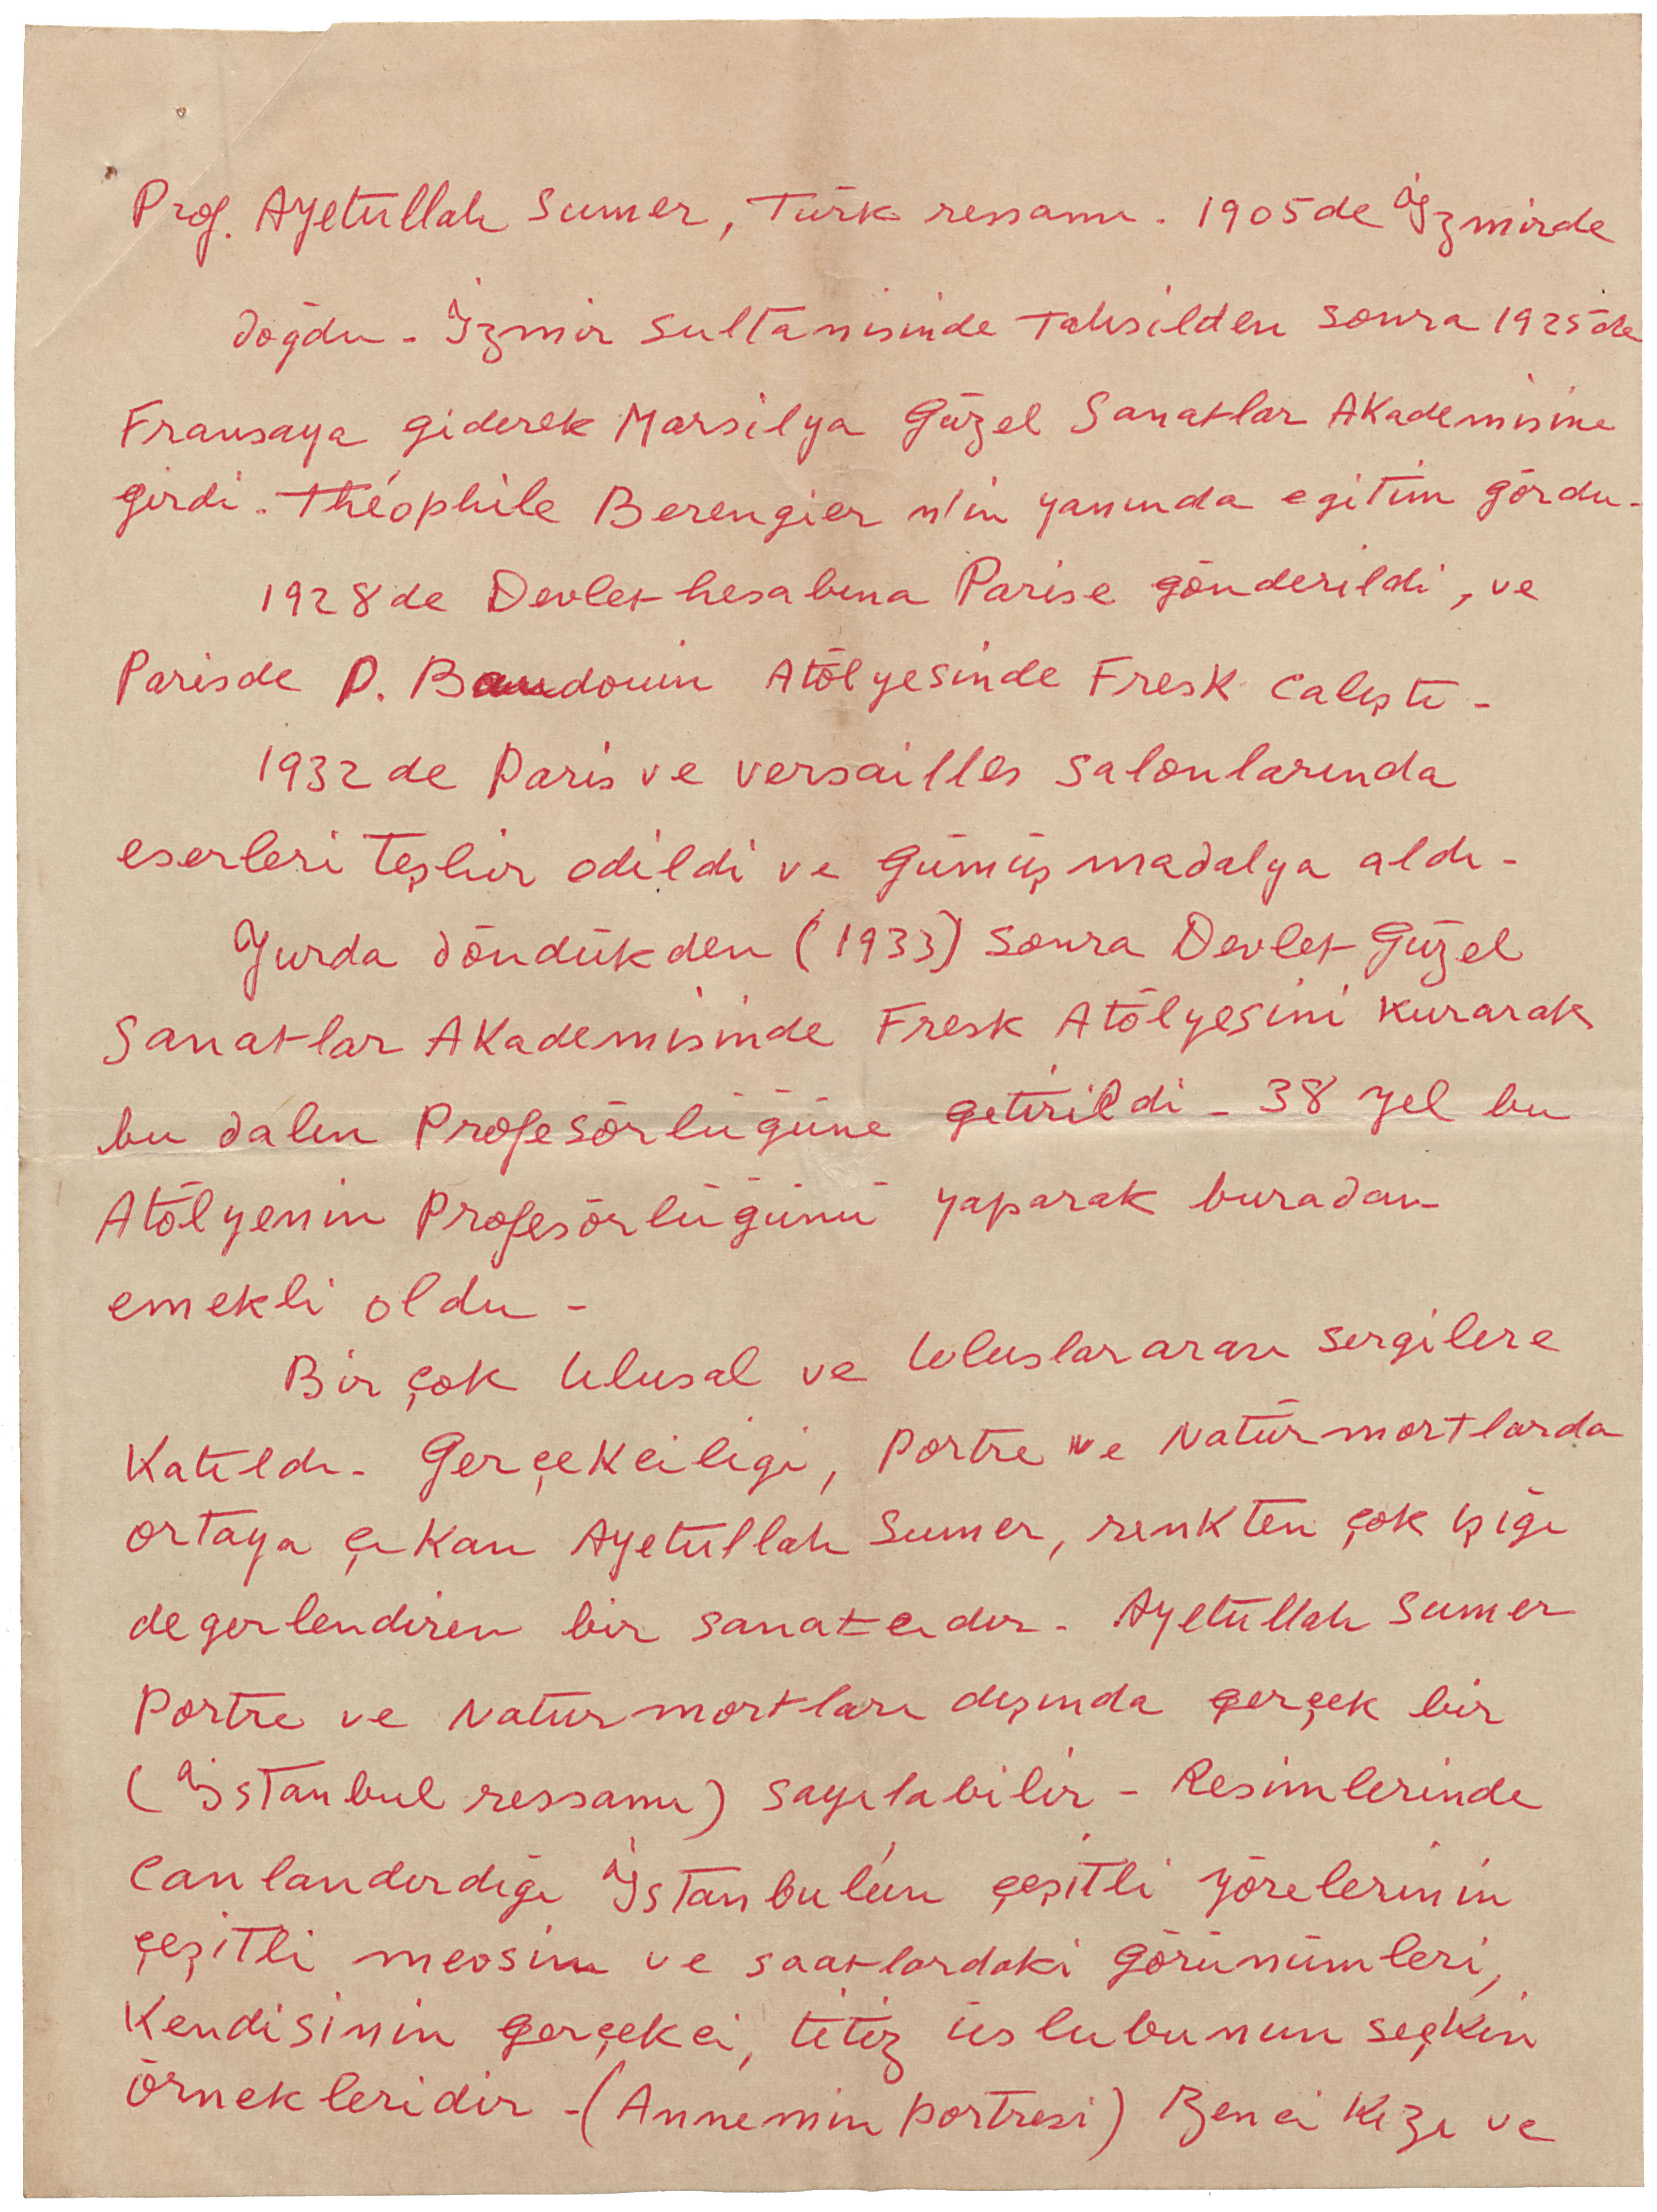 Prof. Ayetullah Sumer, Türk ressamı. 1905de İzmirde
doğdu - İzmir Sultanisinde Tahsilden sonra 1925de
Fransaya giderek Marsilya Güzel Sanatlar Akademisine
girdi. Théophile Berengier n'in yanında egitim gördu-
1928de Devlet hesabına Parise gönderildi, ve
Parisde P. Baudouin Atölyesinde Fresk Calıştı -
1932 de Paris ve versailles salonlarında
eserleri Teşhir edildi ve gümüş madalya aldı -
Yurda döndükden (1933) sonra Devlet Güzel
Sanatlar Akademisinde Fresk Atölyesini kurarak
bu dalın Profesörlüğüne getirildi - 38 yıl bu
Atölyenin Profesörlüğünü yaparak buradan
emekli oldu -
Bir çok Ulusal ve Uluslararası sergilere
Katıldı - Gerçekciligi, Portre ve Natürmortlarda
ortaya çıkan Ayetullah Sumer, renkten çok ışığı
degerlendiren bir sanatcıdır - Ayetullah Sumer
Portre ve Naturmortları dışında gerçek bir
(İstanbul ressamı) sayılabilir - Resimlerinde
Canlandırdığı İstanbulun çeşitli yörelerinin
çeşitli mevsim ve saatlardaki görünümleri,
Kendisinin gerçekci, titiz üslubunun seçkin
örnekleridir - (Annemin portresi) Zenci Kızı ve